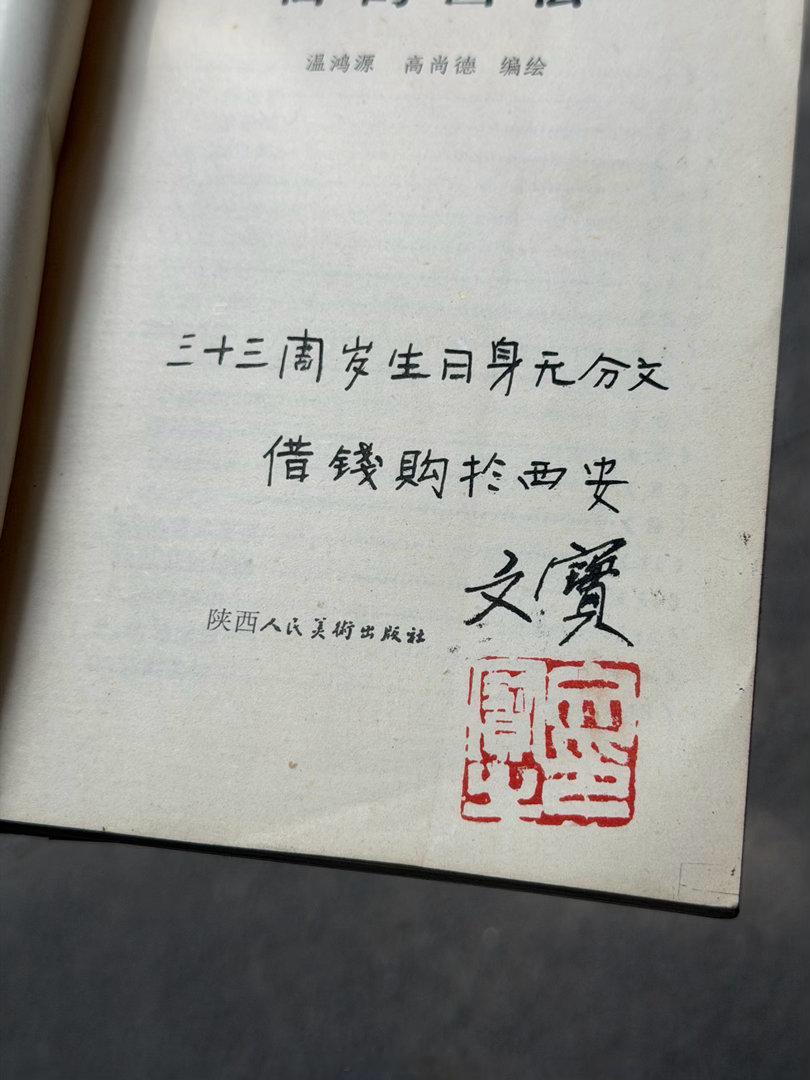 温鸿源 高尚德 编绘
三十三周岁生日身无分文
借錢購於西安
文寶
陕西人民美術出版社